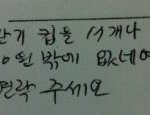 단기 컵을 11개나
0원 밖에 없네여
연락 주세요